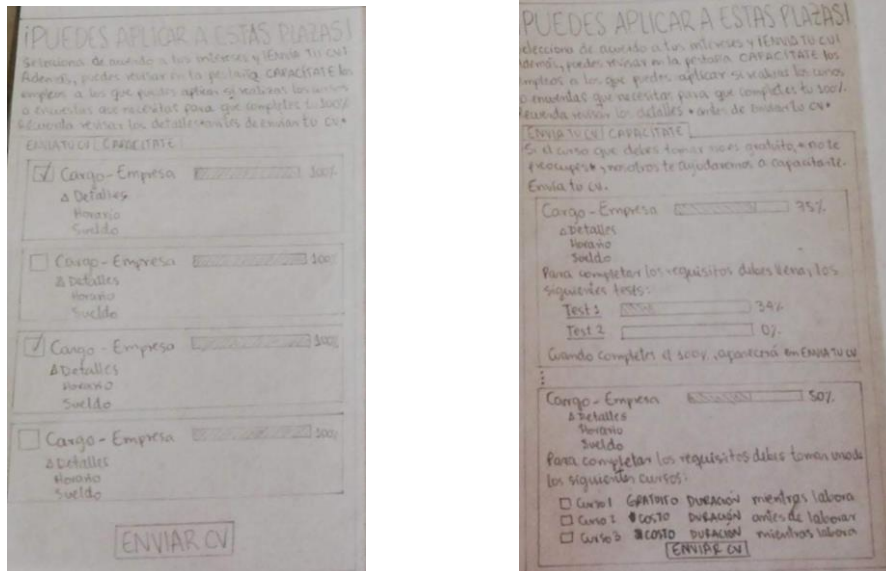 ¡PUEDES APLICAR A ESTAS PLAZAS!
Selecciona de acuerdo a tus intereses y ¡ENVIA TU CV!
Además, puedes revisar en la pestaña CAPACÍTATE los
empleos a los que puedes aplicar si realizas los cursos
o encuestas que necesitas para que completes tu 100%
Recuerda revisar los detalles antes de enviar tu CV
ENVIA TU CV CAPACITATE
Cargo - Empresa 100%
Detalles
Horario
Sueldo
Cargo - Empresa 100%
Detalles
Horario
Sueldo
Cargo - Empresa 100%
Detalles
Horario
Sueldo
Cargo - Empresa 100%
Detalles
Horario
Sueldo
ENVIAR CV
PUEDES APLICAR A ESTAS PLAZAS!
elecciona de acuerdo a tus intereses y ¡ENVIA TU CV!
demás, puedes revisar en la pestaña CAPACÍTATE los
empleos a los que puedes aplicar si realizas los cursos
o encuestas que necesitas para que completes tu 100%.
Recuerda revisar los detalles antes de enviar tu CV
ENVIA TU CV CAPACITATE
Si el curso que debes tomar no es gratuito, no te
preocupes, nosotros te ayudaremos a capacitarte.
Envía tu CV.
Cargo - Empresa 75%
Detalles
Horario
Sueldo
Para completar los requisitos debes llenar los
siguientes tests:
Test 1 34%
Test 2 0%
Cuando completes el 100%, aparecerá en ENVIA TU CV
Cargo - Empresa 50%
Detalles
Horario
Sueldo
Para completar los requisitos debes tomar uno de
los siguientes cursos:
Curso 1 GRATUITO DURACIÓN mientras labora
Curso 2 $COSTO DURACIÓN antes de laborar
Curso 3 $COSTO DURACIÓN mientras labora
ENVIAR CV